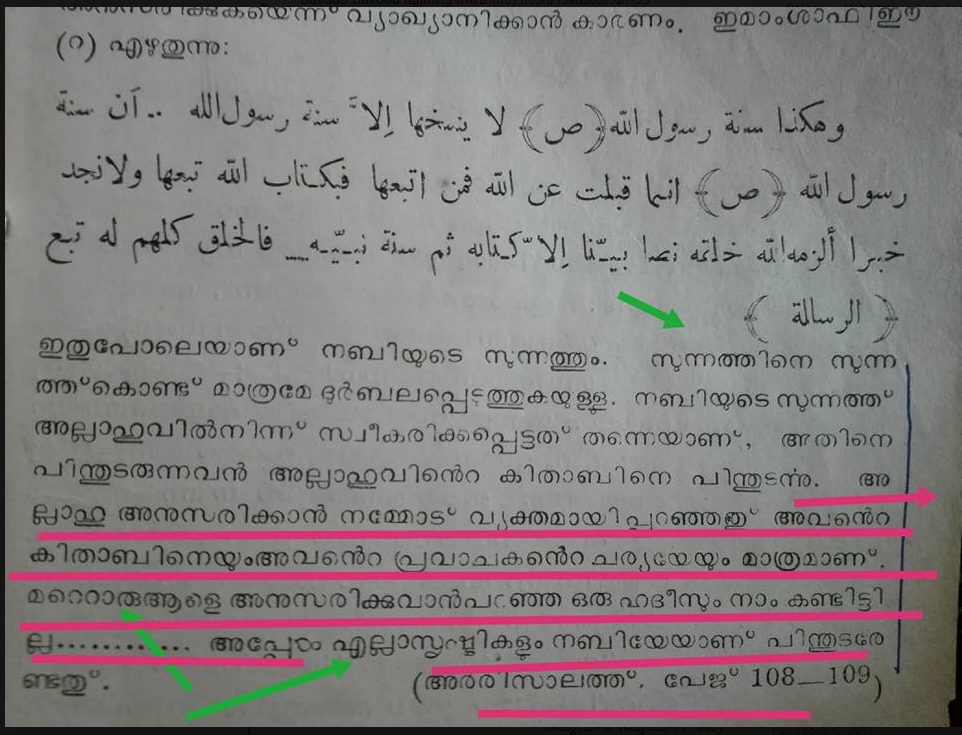 വ്യാഖ്യാനിക്കാൻ കാരണം. ഇമാംശാഫിഈ
(റ) എഴുതുന്നു:
وهكذا سنة رسول الله (ص) لا ينسخها إلاّ سنة رسول الله .. أن سنة
رسول الله (ص) انما قبلت عن الله فمن اتبعها فبكتاب الله تبعها ولا نجد
خبرا ألزمه الله خلقه نصا بيّنا إلاّ كتابه ثم سنة نبيّه... فالخلق كلهم له تبع
(الرسالة)
ഇതുപോലെയാണ് നബിയുടെ സുന്നത്തും. സുന്നത്തിനെ സുന്ന
ത്ത്കൊണ്ട് മാത്രമേ ദുർബലപ്പെടുത്തുകയുള്ളൂ. നബിയുടെ സുന്നത്ത്
അല്ലാഹുവിൽനിന്ന് സ്വീകരിക്കപ്പെട്ടത് തന്നെയാണ്, അതിനെ
പിന്തുടരുന്നവൻ അല്ലാഹുവിൻെറ കിതാബിനെ പിന്തുടർന്നു. അ
ല്ലാഹു അനുസരിക്കാൻ നമ്മോട് വ്യക്തമായി പറഞ്ഞത് അവൻെറ
കിതാബിനെയുംഅവൻെറ പ്രവാചകൻെറ ചര്യയേയും മാത്രമാണ്.
മറെറാരുആളെ അനുസരിക്കുവാൻപറഞ്ഞ ഒരു ഹദീസും നാം കണ്ടിട്ടി
ല്ല............. അപ്പോൾ എല്ലാസൃഷ്ടികളും നബിയേയാണ് പിന്തുടരേ
ണ്ടതു്. (അർരിസാലത്ത്. പേജ് 108—109)